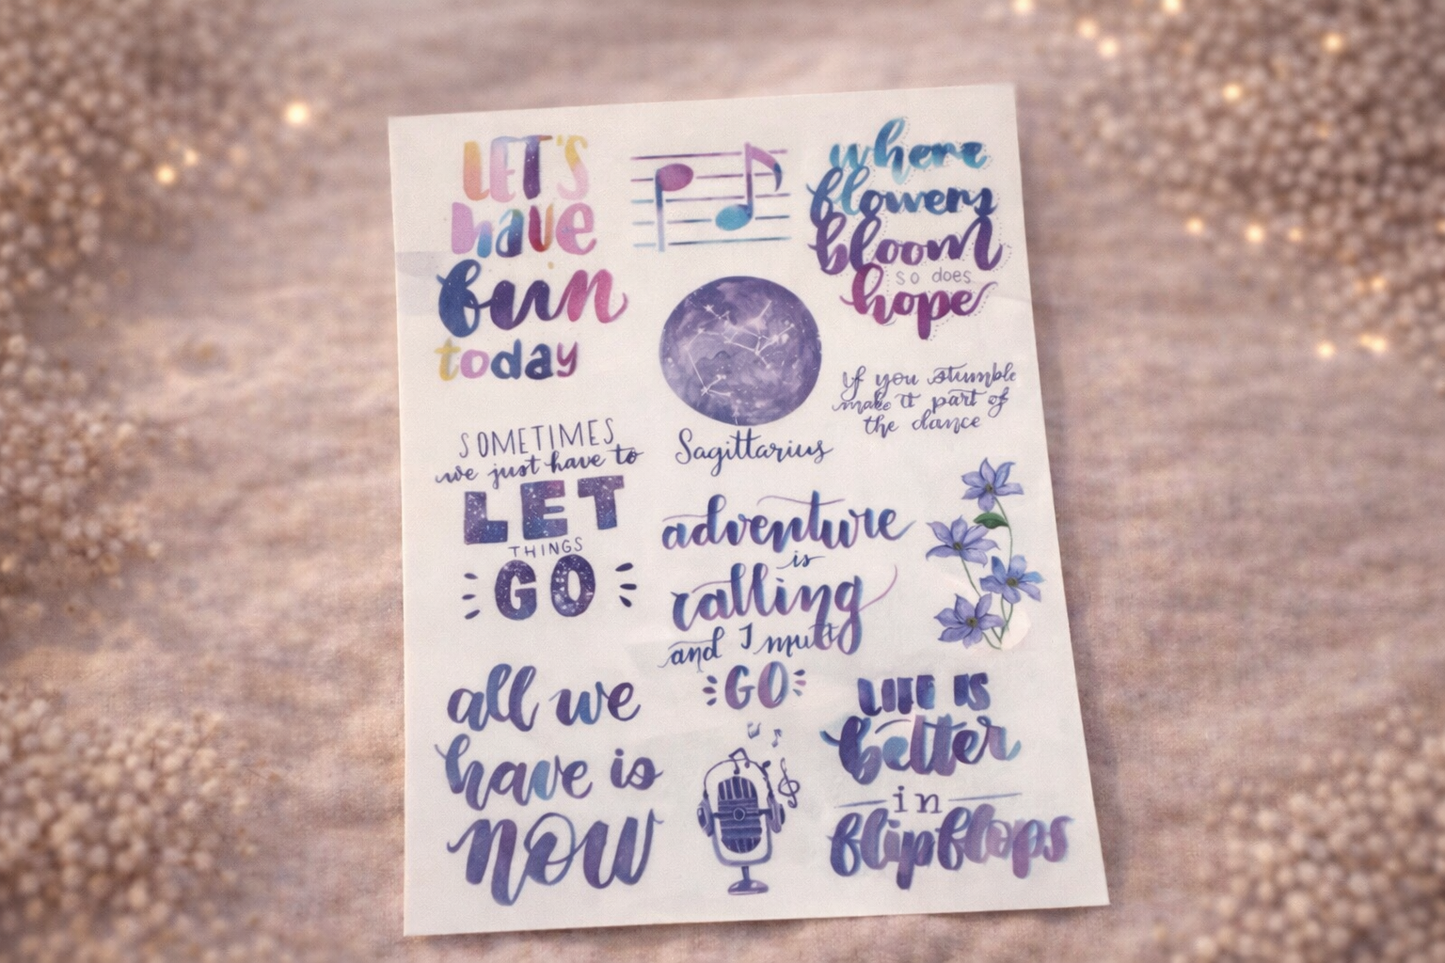 LET'S
have
fun
today
where
flowers
bloom
so does
hope
If you stumble
make it part of
the dance
Sagittarius
SOMETIMES
we just have to
LET
THINGS
GO
adventure
is
calling
and I must
GO
all we
have is
now
LIFE IS
better
in
flipflops